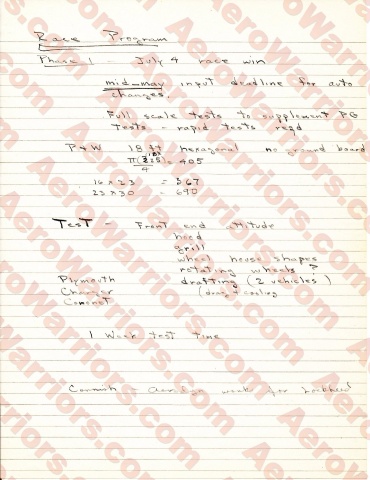 Race Program
Phase 1 - July 4 race win
mid-may input deadline for auto
changes.
Full scale tests to supplement PG
Tests - rapid tests reqd
P & W 18 ft hexagonal no ground board
= 405
4
16 x 23 = 367
23 x 30 = 690
Test - Front end attitude
hood
grill
wheel house shapes
rotating wheels ?
Plymouth drafting (2 vehicles)
Charger (drag & cooling
Coronet
1 Week test time
week for Lockheed
AeroWarriors.com